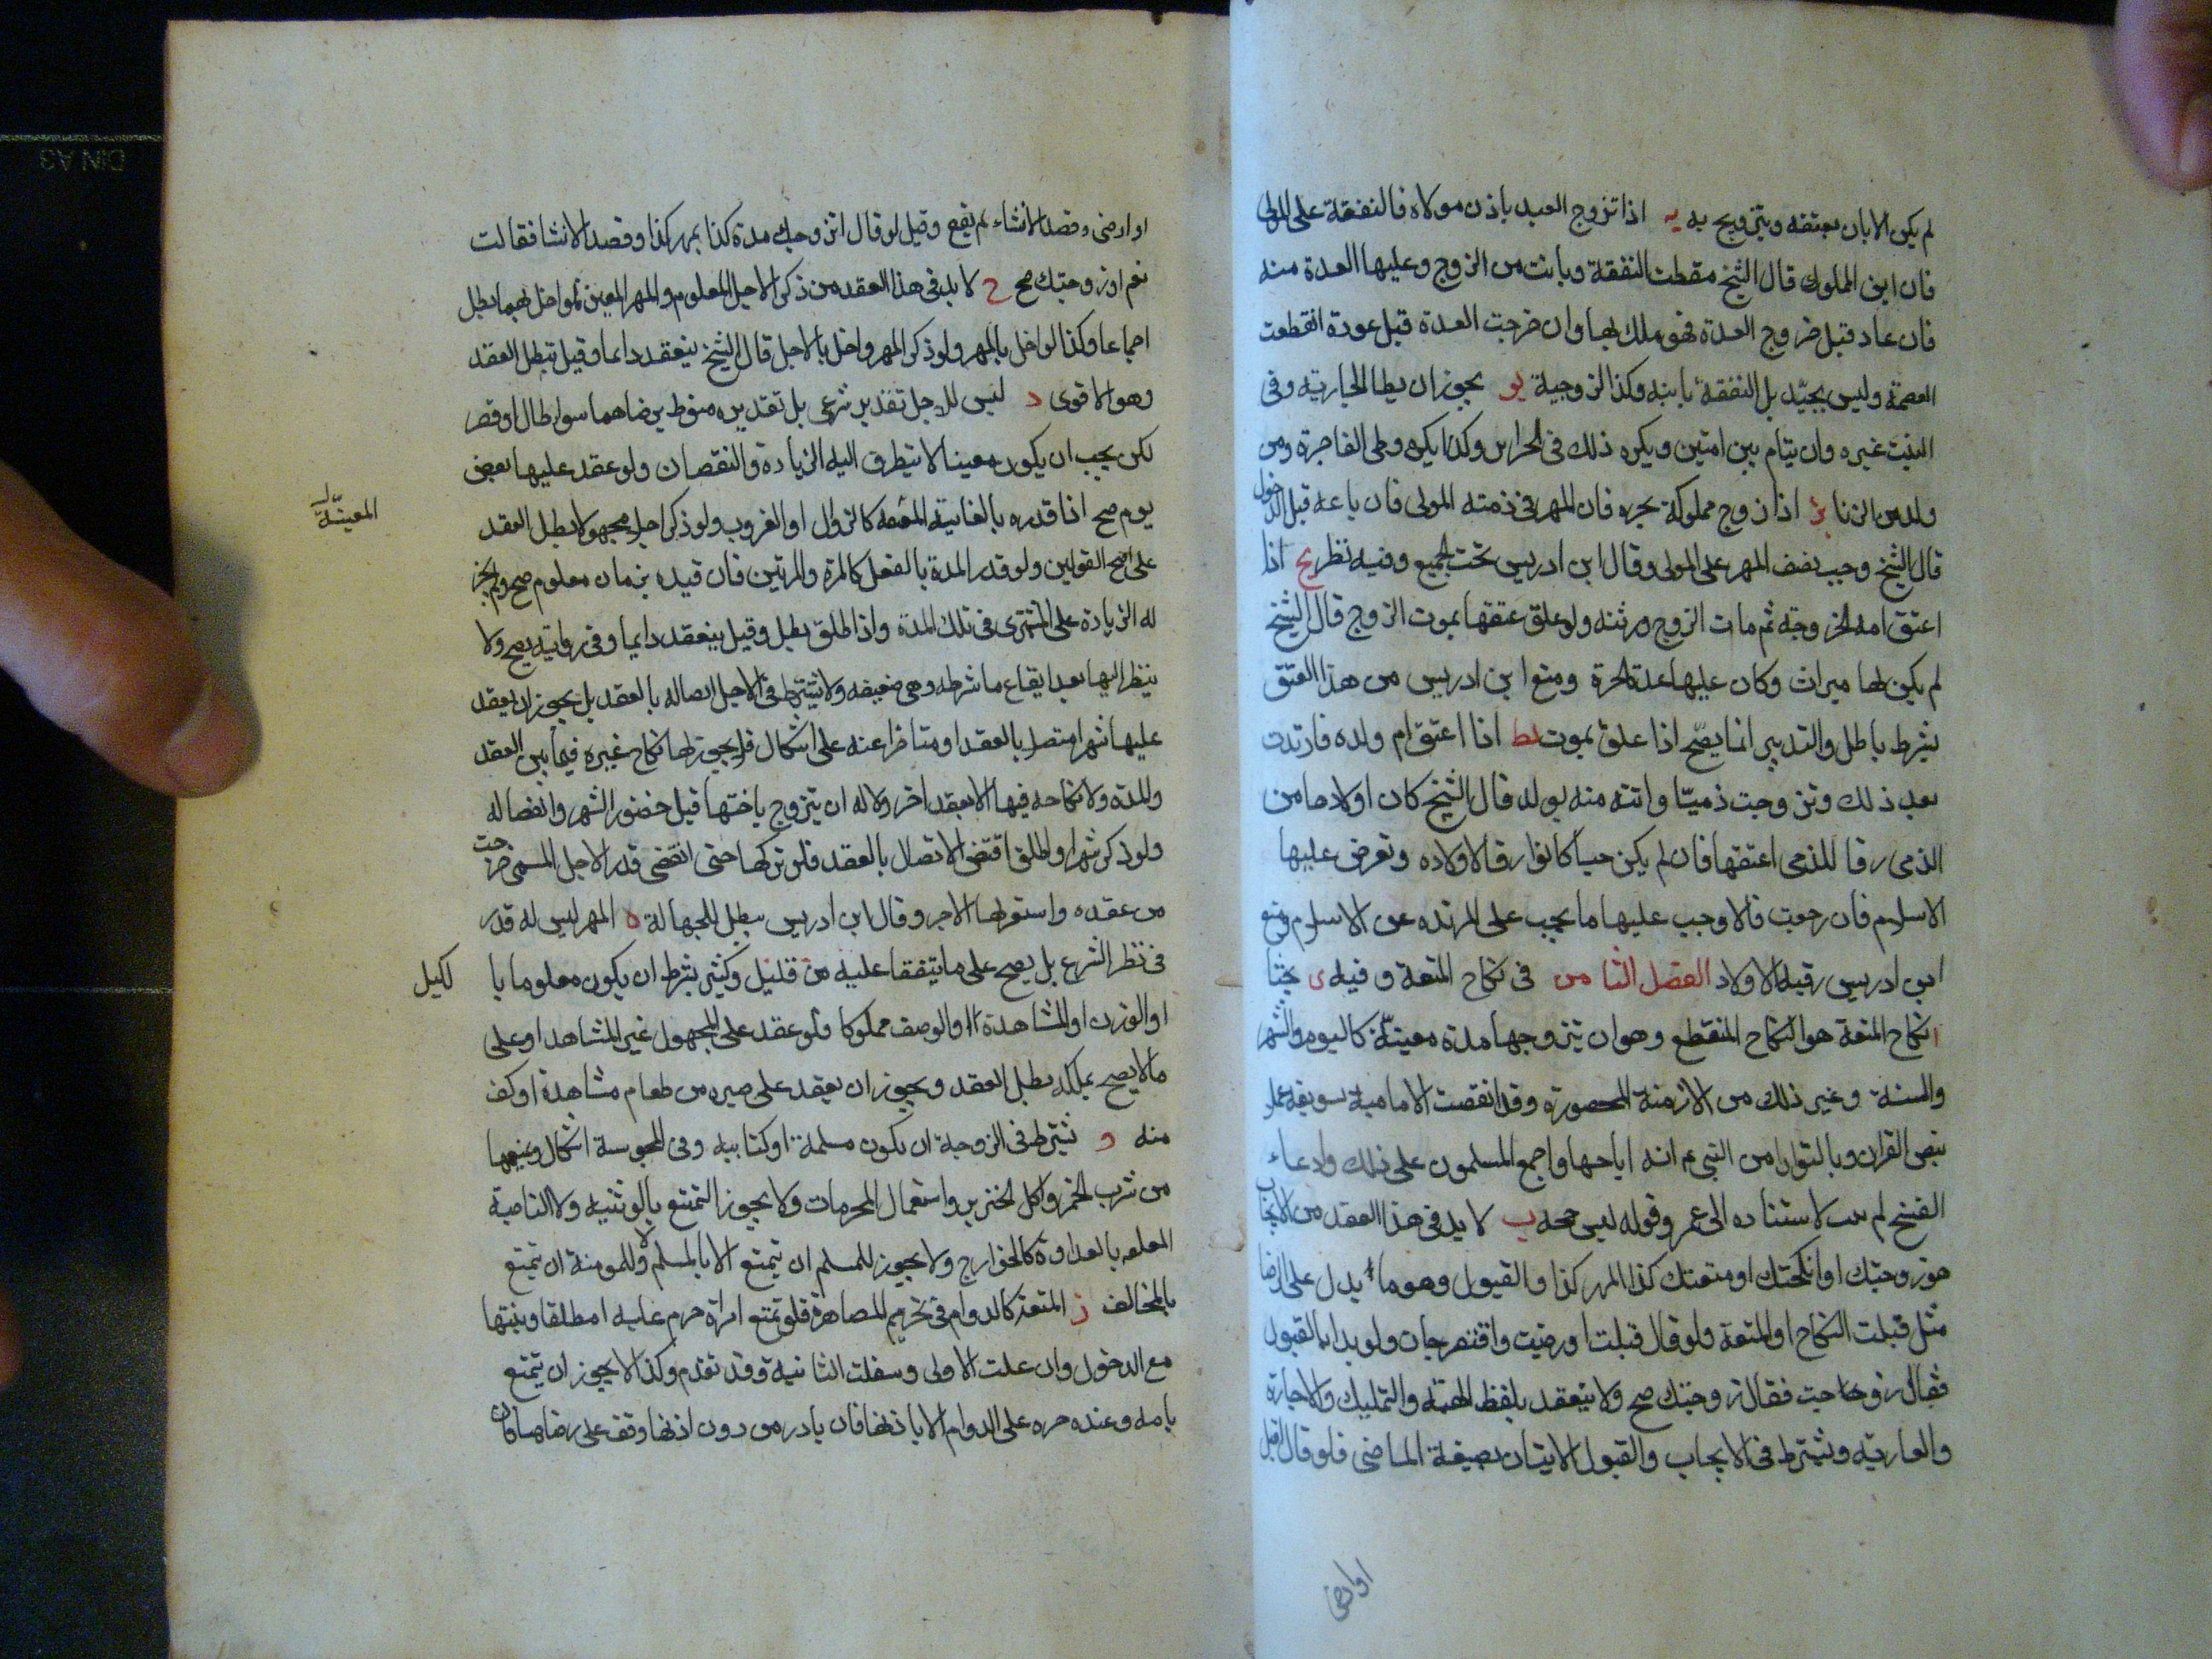 لم يكن الا بان يعتقه ويتزويج به يه اذا تزوج العبد باذن مولاه فالنفقة على المولى
فان ابق المملوك قال الشيخ سقطت النفقة وبانت من الزوج وعليها العدة منه
فان عاد قبل خروج العدة فهو ملك بها وان خرجت العدة قبل عوده انقطعت
العصمة وليس بجيّد بل النفقة ثابتة وكذا الزوجية يو يجوز ان يطا الجارية وفى
البيت غيره وان ينام بين امتين ويكره ذلك فى الحراير وكذا يكره وطى الفاجرة ومن
ولد من الزنا يز اذا زوج مملوكه بحره فان المهر فى ذمته المولى فان باعه قبل الدخول
قال الشيخ وجب نصف المهر على المولى وقال ابن ادريس تحت الجميع وفيه نظر يح اذا
اعتق امه الزوجة ثم مات الزوج ورثته ولو علق عتقها بموت الزوج قال الشيخ
لم يكن لها ميراث وكان عليها عدة الحرة ومنع ابن ادريس من هذا العتق
بشرط باطل والتدبير انما يصّح اذا علق بموت يط اذا اعتق ام ولده فارتدت
بعد ذلك وتزوجت ذميّا واتته منه بولد قال الشيخ كان اولادها من
الذمى رقا للذى اعتقها فان لم يكن حيا كانوا رقا لاولاده وتعرض عليها
الاسلام فان رجعت فالا وجب عليها ما يجب على المرتده عن الاسلام ومنع
ابن ادريس رقية الاولاد الفصل الثامن فى نكاح المتعة وفيه ى بحثا
ا نكاح المتعة هو النكاح المنقطع وهو ان يتزوجها مدة معينّة كاليوم والشهر
والسنة وغير ذلك من الازمنة المحصورة وقد انفصت الامامية
بنص القران وبالتواتر من النبى ع انه اباحها واجمع المسلمون على ذلك وادعاء
الفسخ لم لاستناده الى عمر وقوله ليس حجه ب لا بد فى هذا العقد من الايجاب
هو زوجتك او انكحتك او متعتك كذا المهر كذا والقبول وهو ما يدل على الرضا
مثل قبلت النكاح او المتعة ولو قال قبلت او رضيت واقتصر جاز ولو بدا بالقبول
فقال تزوجت فقال زوجتك صح ولا ينعقد بلفظ الهبة والتمليك والاجارة
والعارية ويشترط فى الايجاب والقبول الاتيان بصيغة الماضى فلو قال اقبل
او ارضى
او ارضى وقصد الانشاء لم يقع وقيل لو قال اتزوجك مدة كذا بمهر كذا وقصد الانشا فقالت
نعم او زوجتك صح ح لا بد فى هذا العقد من ذكر الاجل المعلوم والمهر المعين فلو اخل بهما بطل
اجماعا وكذا لو اخل بالمهر ولو ذكر المهر واخل بالاجل قال الشيخ ينعقد داىما وقيل تبطل العقد
وهو الاقوى د ليس للاجل تقدير شرعى بل تقديره منوط برضاهما سوا طال او قصر
لكن يجب ان يكون معينا لا يتطرق اليه الزيادة والنقصان ولو عقد عليها بعض
يوم صح اذا قدره بالغاية المعينّة كالزوال او الغروب ولو ذكر اجلا مجهولا بطل العقد
على اصح القولين ولو قدر المدة بالفعل كالمرة والمرتين فان قيده بزمان معلوم صح ولم يجز
له الزيادة على المشترى فى تلك المدة واذا طلق بطل وقيل ينعقد دايما وفى رواية يصح ولا
ينظر اليها بعد ايقاع ما شرطه وهى ضعيفه ولا يشترط فى الاجل اتصاله بالعقد بل يجوز ان يعقد
عليها شهرا متصلا بالعقد او متاخرا عنه على اشكال فلا يجوز لها نكاح غيره فيما بين العقد
والمدة ولا نكاحه فيها الا بعقد اخر ولا له ان يتزوج باختها قبل حضور الشهر وانفصاله
ولو ذكر شهرا واطلق اقتضى الاتصال بالعقد فلو تركها حتى انقضى قدر الاجل المسمى خرجت
من عقده واستقر لها الاجر وقال ابن ادريس يبطل للجهالة ه المهر ليس له قدر
فى نظر الشرع بل يصح على ما يتفقا عليه من قليل وكثير بشرط ان يكون معلوما با لكيل
او الوزن او المشاهدة او الوصف مملوكا فلو عقد على المجهول غير المشاهد او على
ما لا يصح تملكه بطل العقد ويجوز ان يعقد على صبره من طعام مشاهدة او كف
منه و يشترط فى الزوجة ان يكون مسلمة او كتابيه وفى المجوسة اشكال ويمنعها
من شرب الخمر واكل الخنزير واستعمال المحرمات ولا يجوز التمتع بالوثنيه ولا الناصبة
المعلنه بالعداوة كالخوارج ولا يجوز للمسلم ان يتمتع الا بالمسلم ولا للمومنة ان تتمتع
بالمخالف ز المتعة كالدوام فى تحريم المصاهرة فلو تمتع امراة حرم عليه امطلقا وبنتها
مع الدخول وان علت الاولى وسفلت الثانية وقد تقدم وكذا لا يجوز ان يتمتع
بامه وعنده حره على الدوام الا باذنها فان بادر من دون اذنها وقف على رضاها وكان